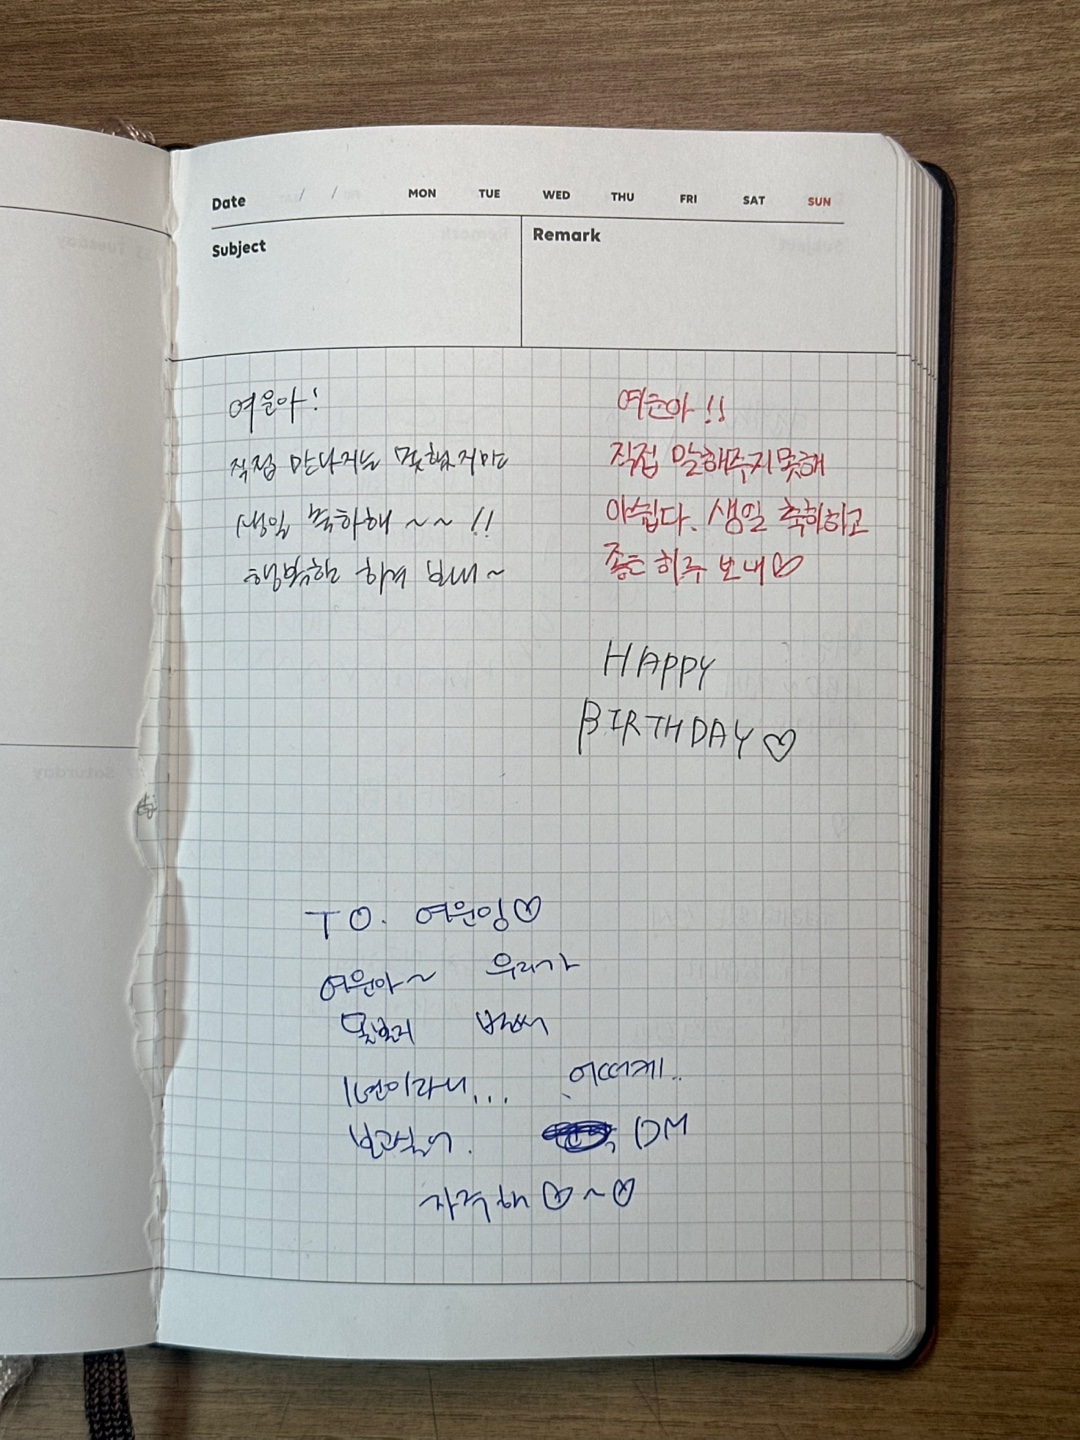 Date / / MON TUE WED THU FRI SAT SUN
Subject
Remark
여윤아!
직접 만나지는 못했지만
생일 축하해~~!!
행복한 하루 보내~
여윤아!!
직접 말해주지못해
아쉽다. 생일 축하하고
좋은 하루 보내♡
HAPPY
BIRTHDAY♡
TO. 여윤잉♡
여윤아~ 우리가
벌써
1년이라니... 어떠게..
DM
자주해♡~♡